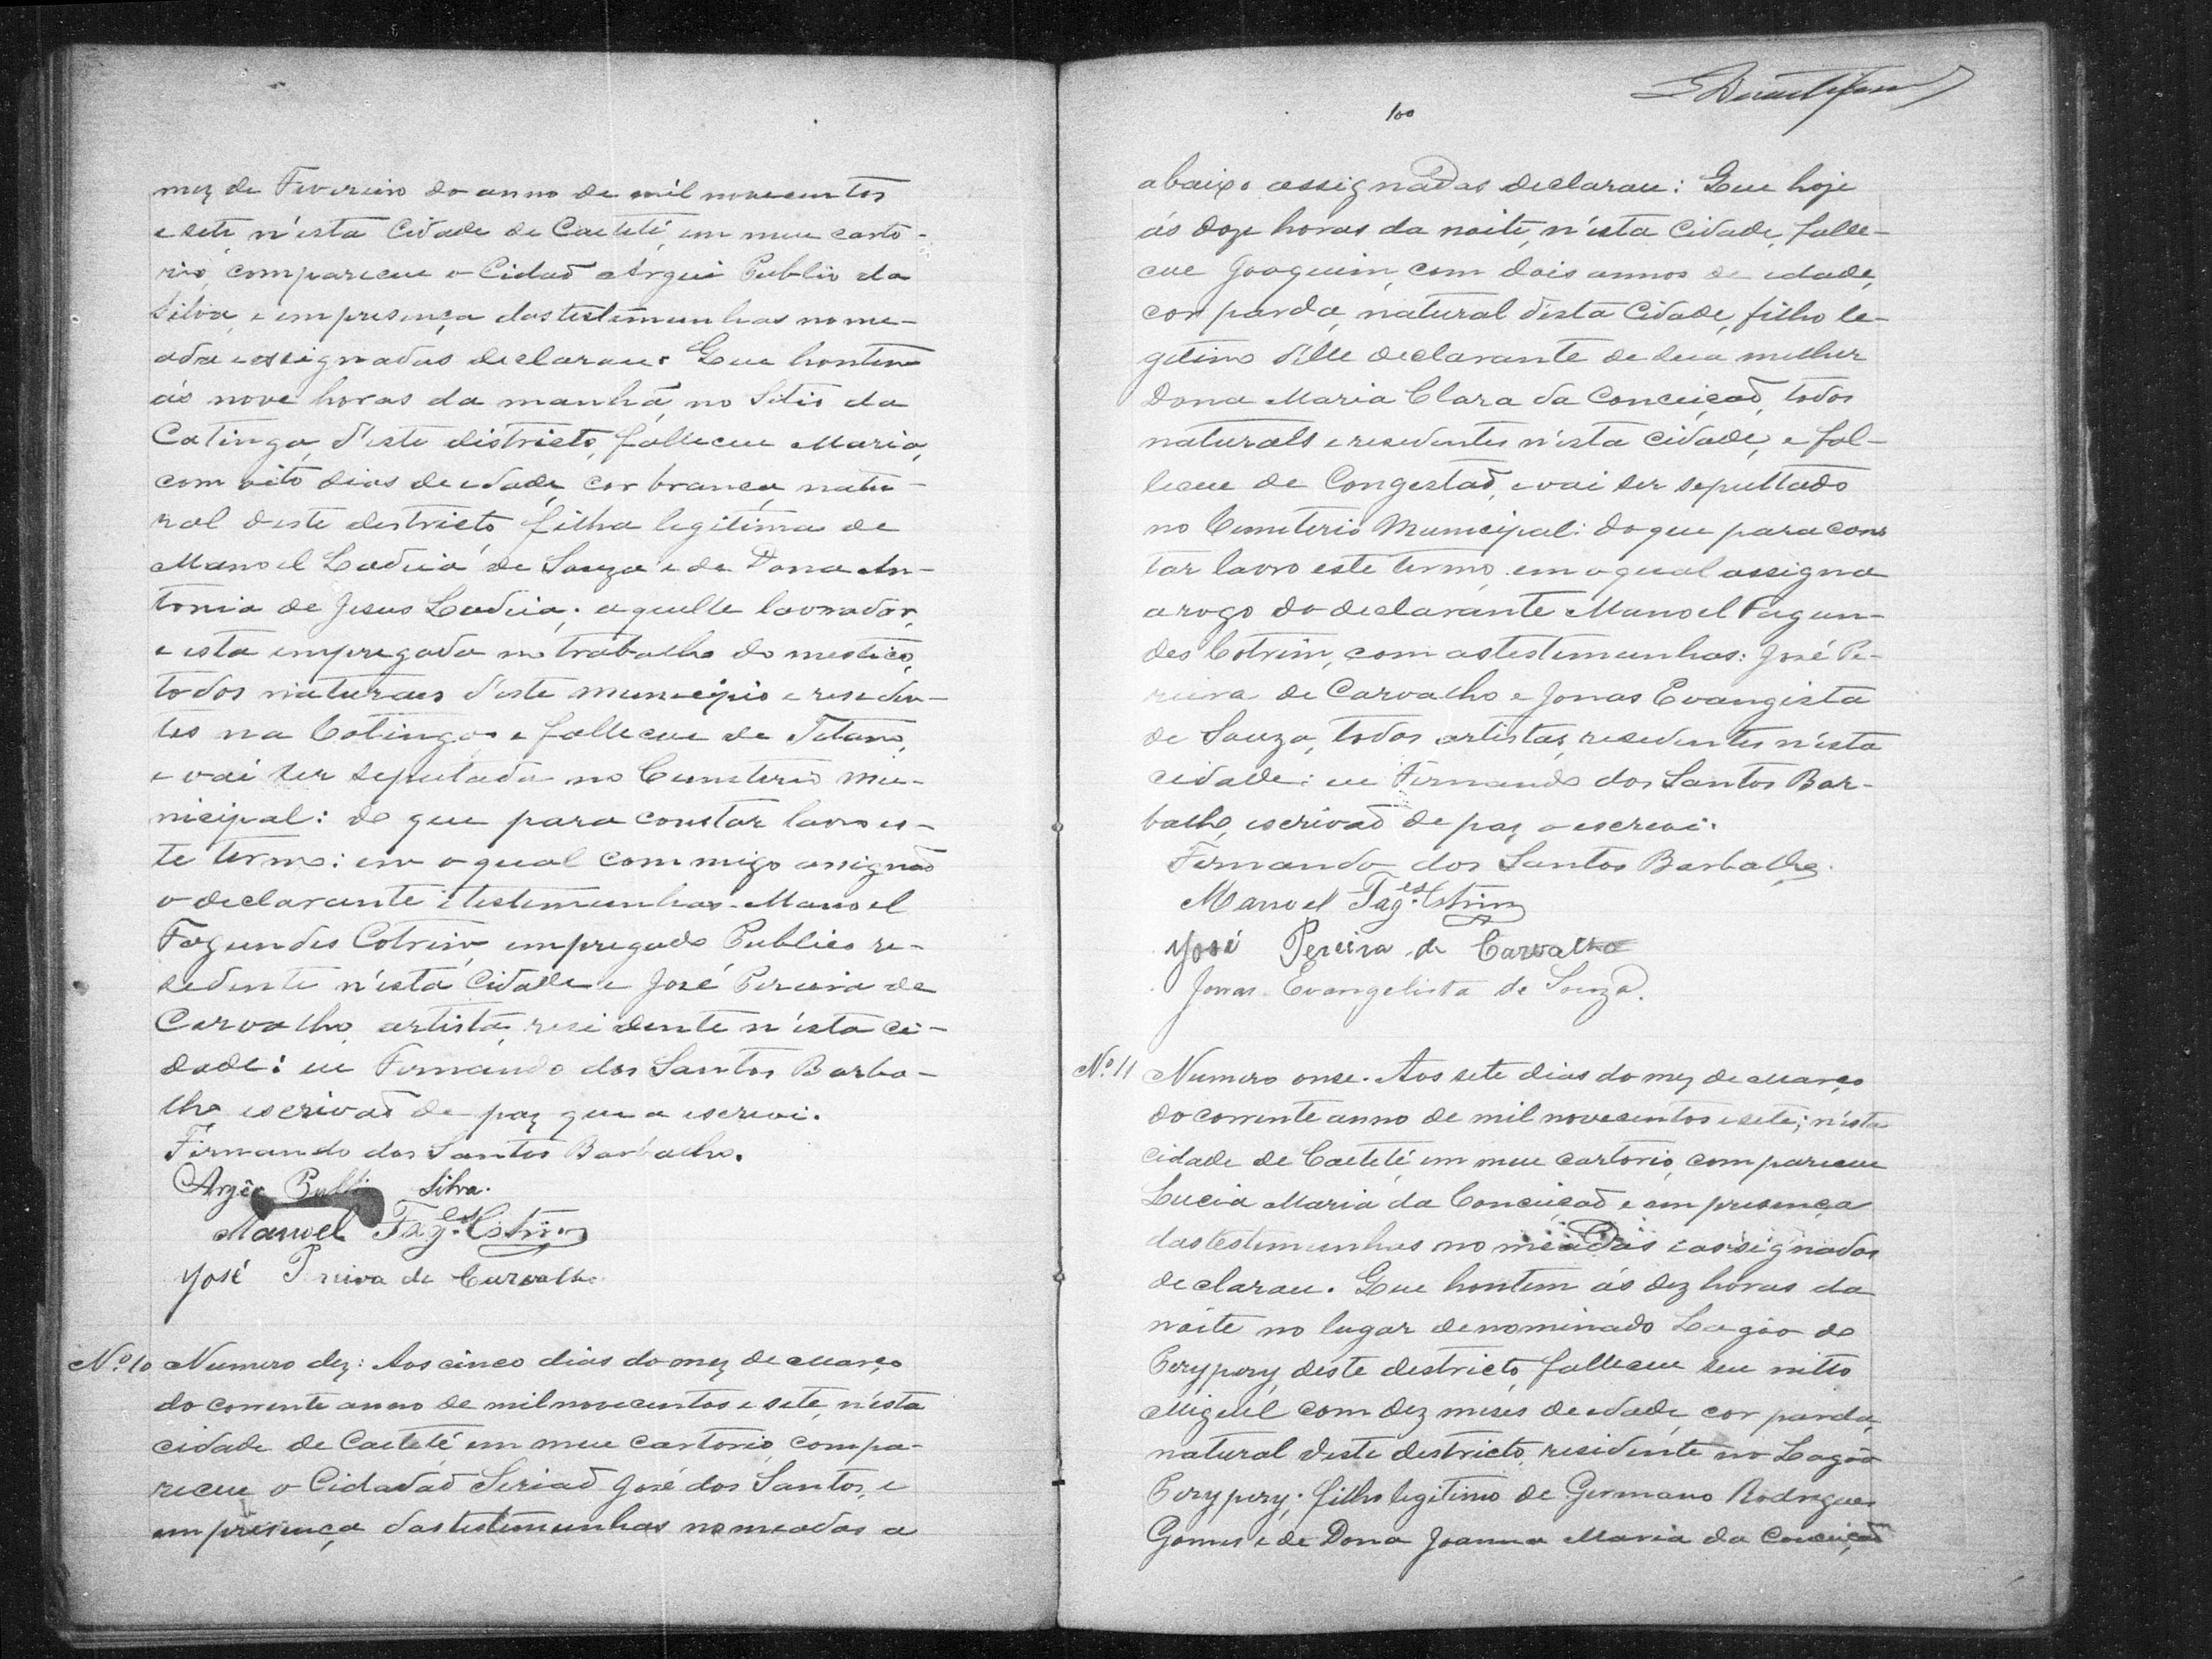 mez de Fevereiro do anno de mil novecentos
e sete n'esta Cidade de Caeteté, em meu carto-
rio, compareceu o Cidaõ Argeu Publio da
Silva, e em presença das testemunhas nome-
adas e assignadas declarou: Que hontem
ás nove horas da manhã, no Sitio da
Catinga, d'este districto, falleceu Maria,
com oito dias de edade, cor branca, natu-
ral deste destricto filha legitima de
Manoel de Souza e de Dona An-
tonia de Jesus; aquelle lavrador,
e esta empregada no trabalho domestico,
todos naturaes d'este municipio e residen-
tes na Catinga e falleceu de Tetano,
e vai ser sepultada no Cemiterio Mu-
nicipal: do que para constar lavro es-
te termo: em o qual commigo assignaõ
o declarante e testemunhas Manoel
Fagundes Cotrim, empregado Publico re-
sedente n'esta Cidade e José Pereira de
Carvalho, artista, residente n'esta ci-
dade: eu Fernando dos Santos Barba-
lho escrivaõ de paz que a escrevi.
Fernando dos Santos Barbalho.
Argêo Silva.
Manoel Fag.es Cotrim
José Pereira de Carvalho
N.º 10 Numero dez: Aos cinco dias do mez de Março
do corrente anno de mil novecentos e sete, n'esta
cidade de Caeteté em meu cartorio, compa-
receu o Cidadaõ Seriaõ José dos Santos, e
em presença das testemunhas nomeadas a
100
abaixo assignadas declarau: Que hoje
ás doze horas da noite, n'esta Cidade, falle-
ceu Joaquim, com dois annos de edade,
cor parda, natural d'esta Cidade, filho le-
gitimo d'elle declarante de sua mulher
Dona Maria Clara da Conceiçaõ, todos
naturaes e resedentes n'esta cidade, e fal-
leceu de Congestaõ, e vai ser sepultado
no Cemiterio Municipal: do que para cons
tar lavro este termo em o qual assigna
a rogo do declarante Manoel Fagun-
des Cotrim, com as testemunhas: José Pe-
reira de Carvalho e Jonas Evangista
de Souza, todos artistas, resedentes n'esta
cidade: eu Fernando dos Santos Bar-
balho, escrivaõ de paz o escrevi.
Fernando dos Santos Barbalho.
Manoel Fag.es Cotrim
José Pereira de Carvalho
Jonas Evangelista de Souza.
N.º 11 Numero onse. Aos sete dias do mez de Março
do corrente anno de mil novecentos e sete; n'esta
cidade de Caeteté em meu cartorio, compareceu
Lucia Maria da Conceiçaõ e em presença
das testemunhas nomeadas e assignadas
declarau. Que hontem ás dez horas da
noite no lugar denominado Lagôa do
Perypery, deste destricto, falleceu seu netto
Miguel com dez mezes de edade, cor parda,
natural deste destricto, residente no Lagôa
Perypery; filho legitimo de Germano Rodrigues
Gomes e de Dona Joanna Maria da Conceiçaõ